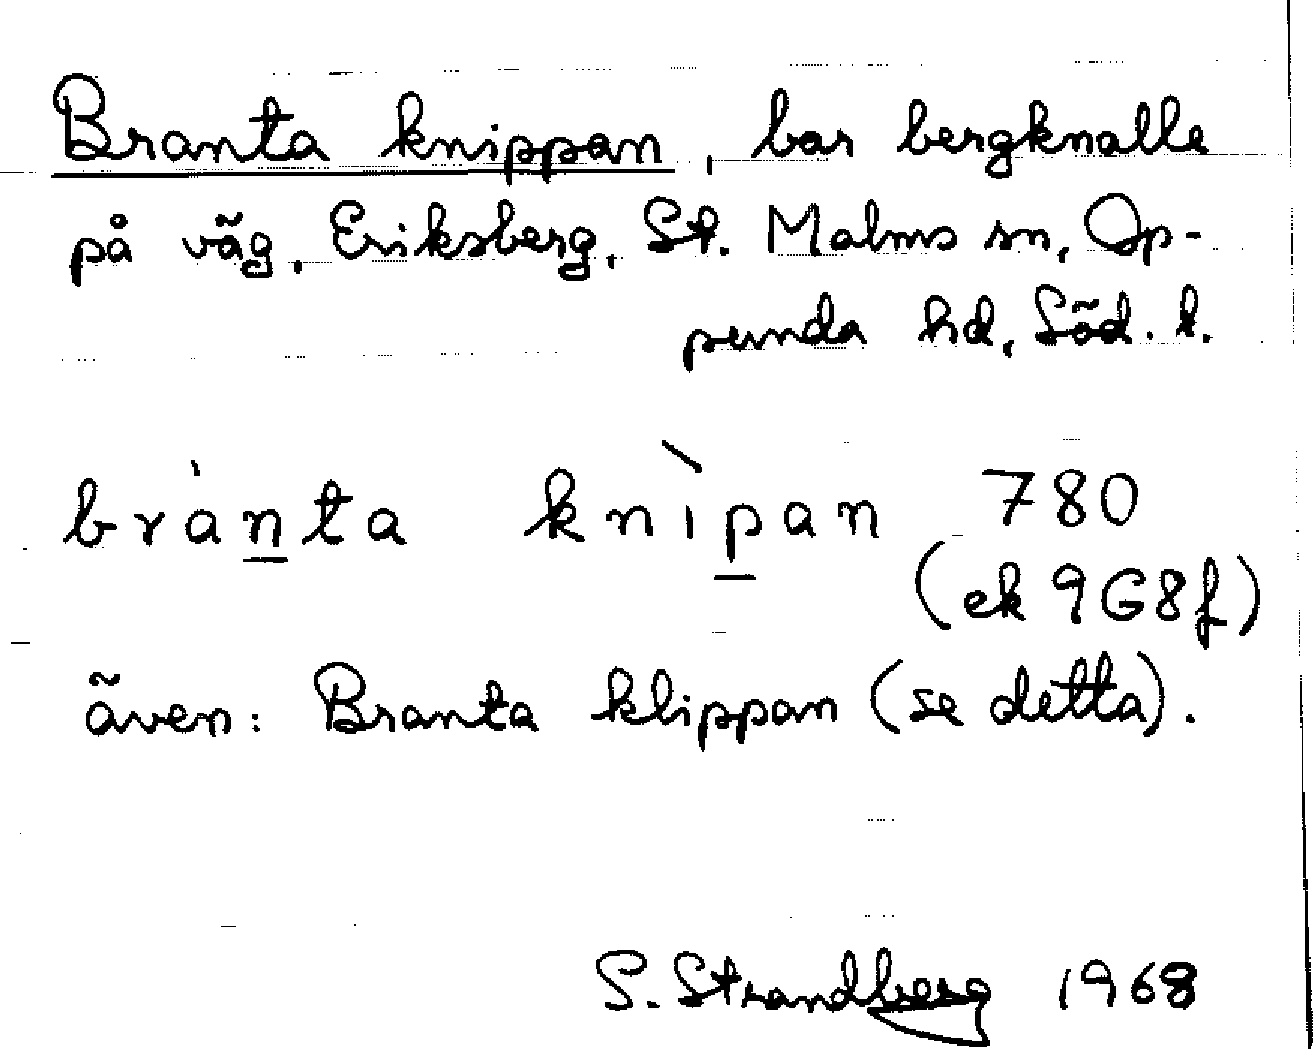 Branta knippan, bar bergknalle
på väg, Eriksberg, St. Malms sn, Op-
punda hd, Söd. l.
brànta knìpan 780
(ek 9G8f)
även: Branta klippan (se detta).
S. Strandberg 1968